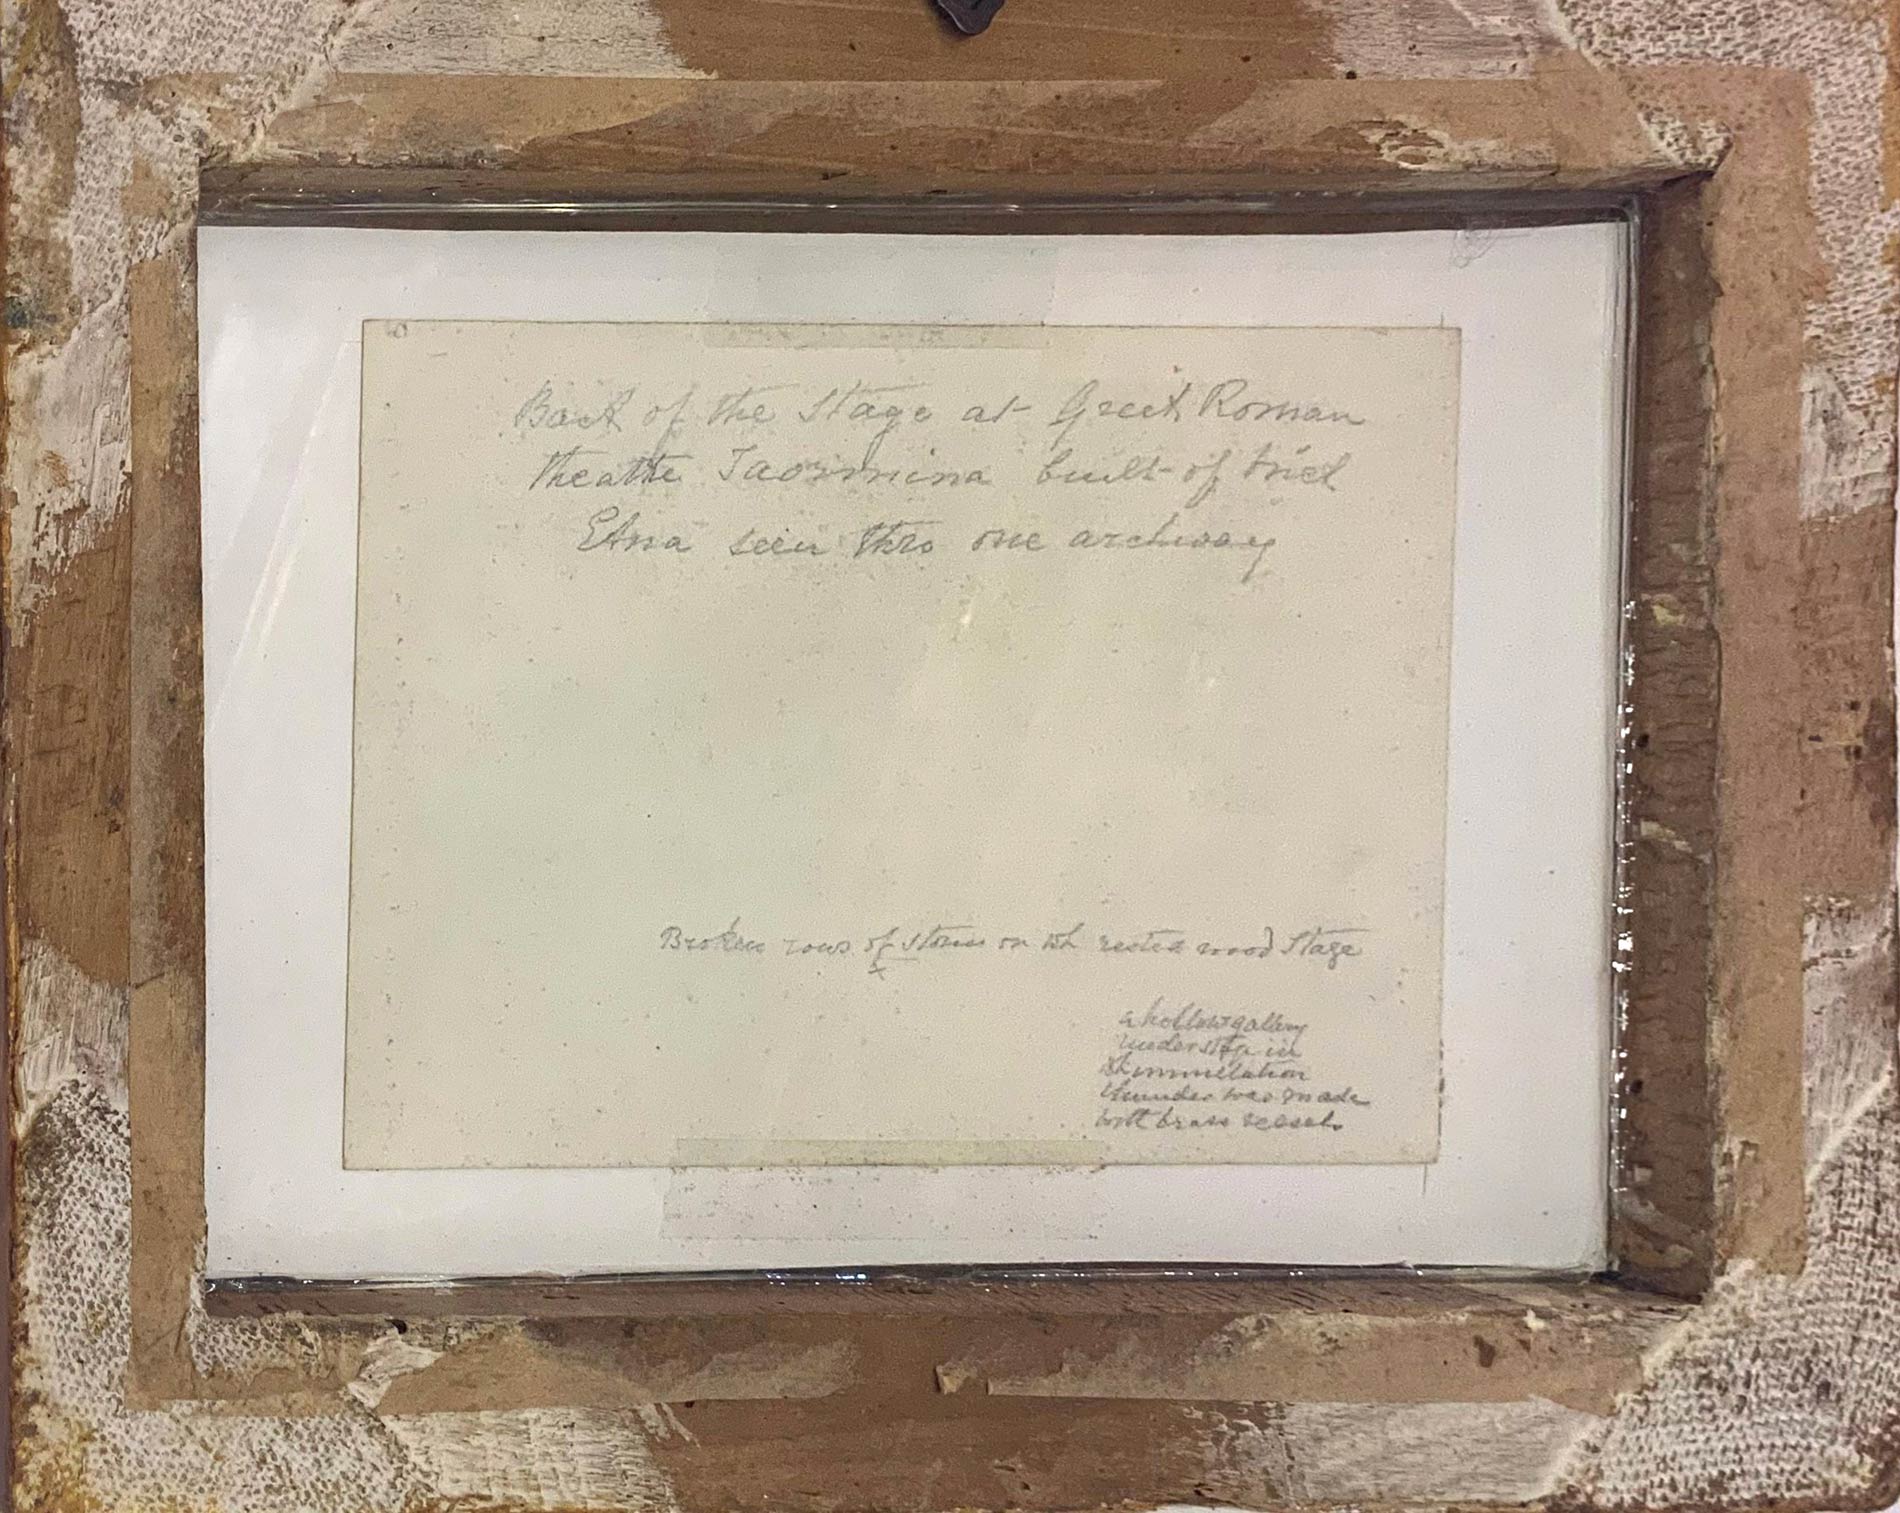 Back of the Stage at Greek Roman
theatre Taormina built of brick
Etna seen thro one archway
Broken rows of stones on wh rested wood Stage
x
a hollow gallery
under stage in
wh immitation
thunder was made
with brass vessels